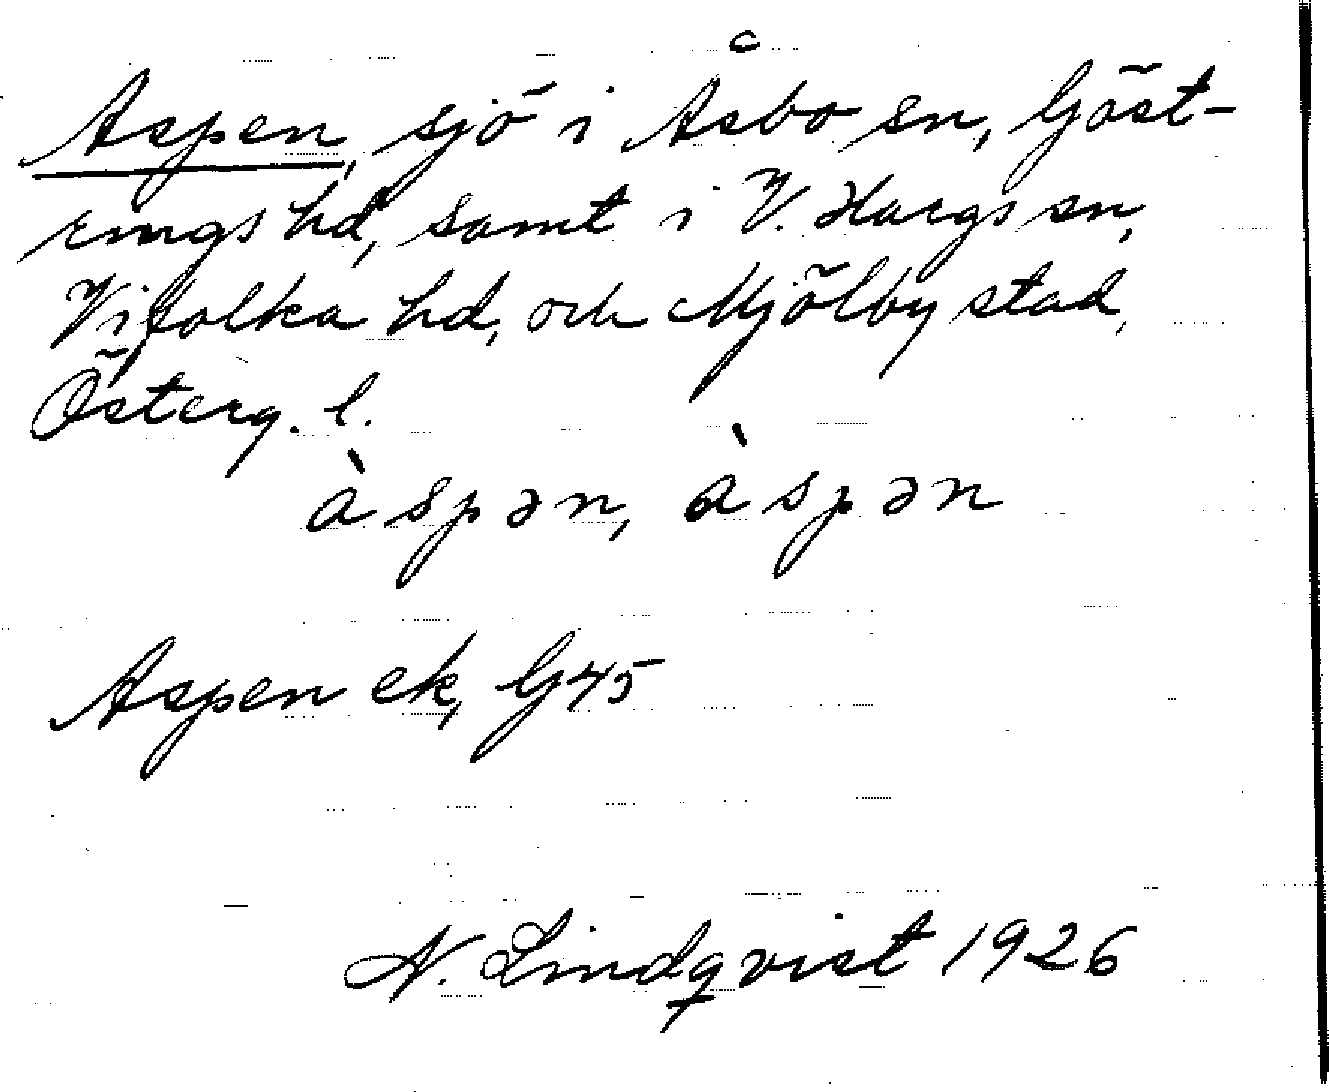 Aspen, sjö i Åsbo sn, Göst-
rings hd, samt i V. Hargs sn,
Vifolka hd, och Mjölby stad,
Österg. l.
àspən, àspən
Aspen ek, G45
N. Lindqvist 1926